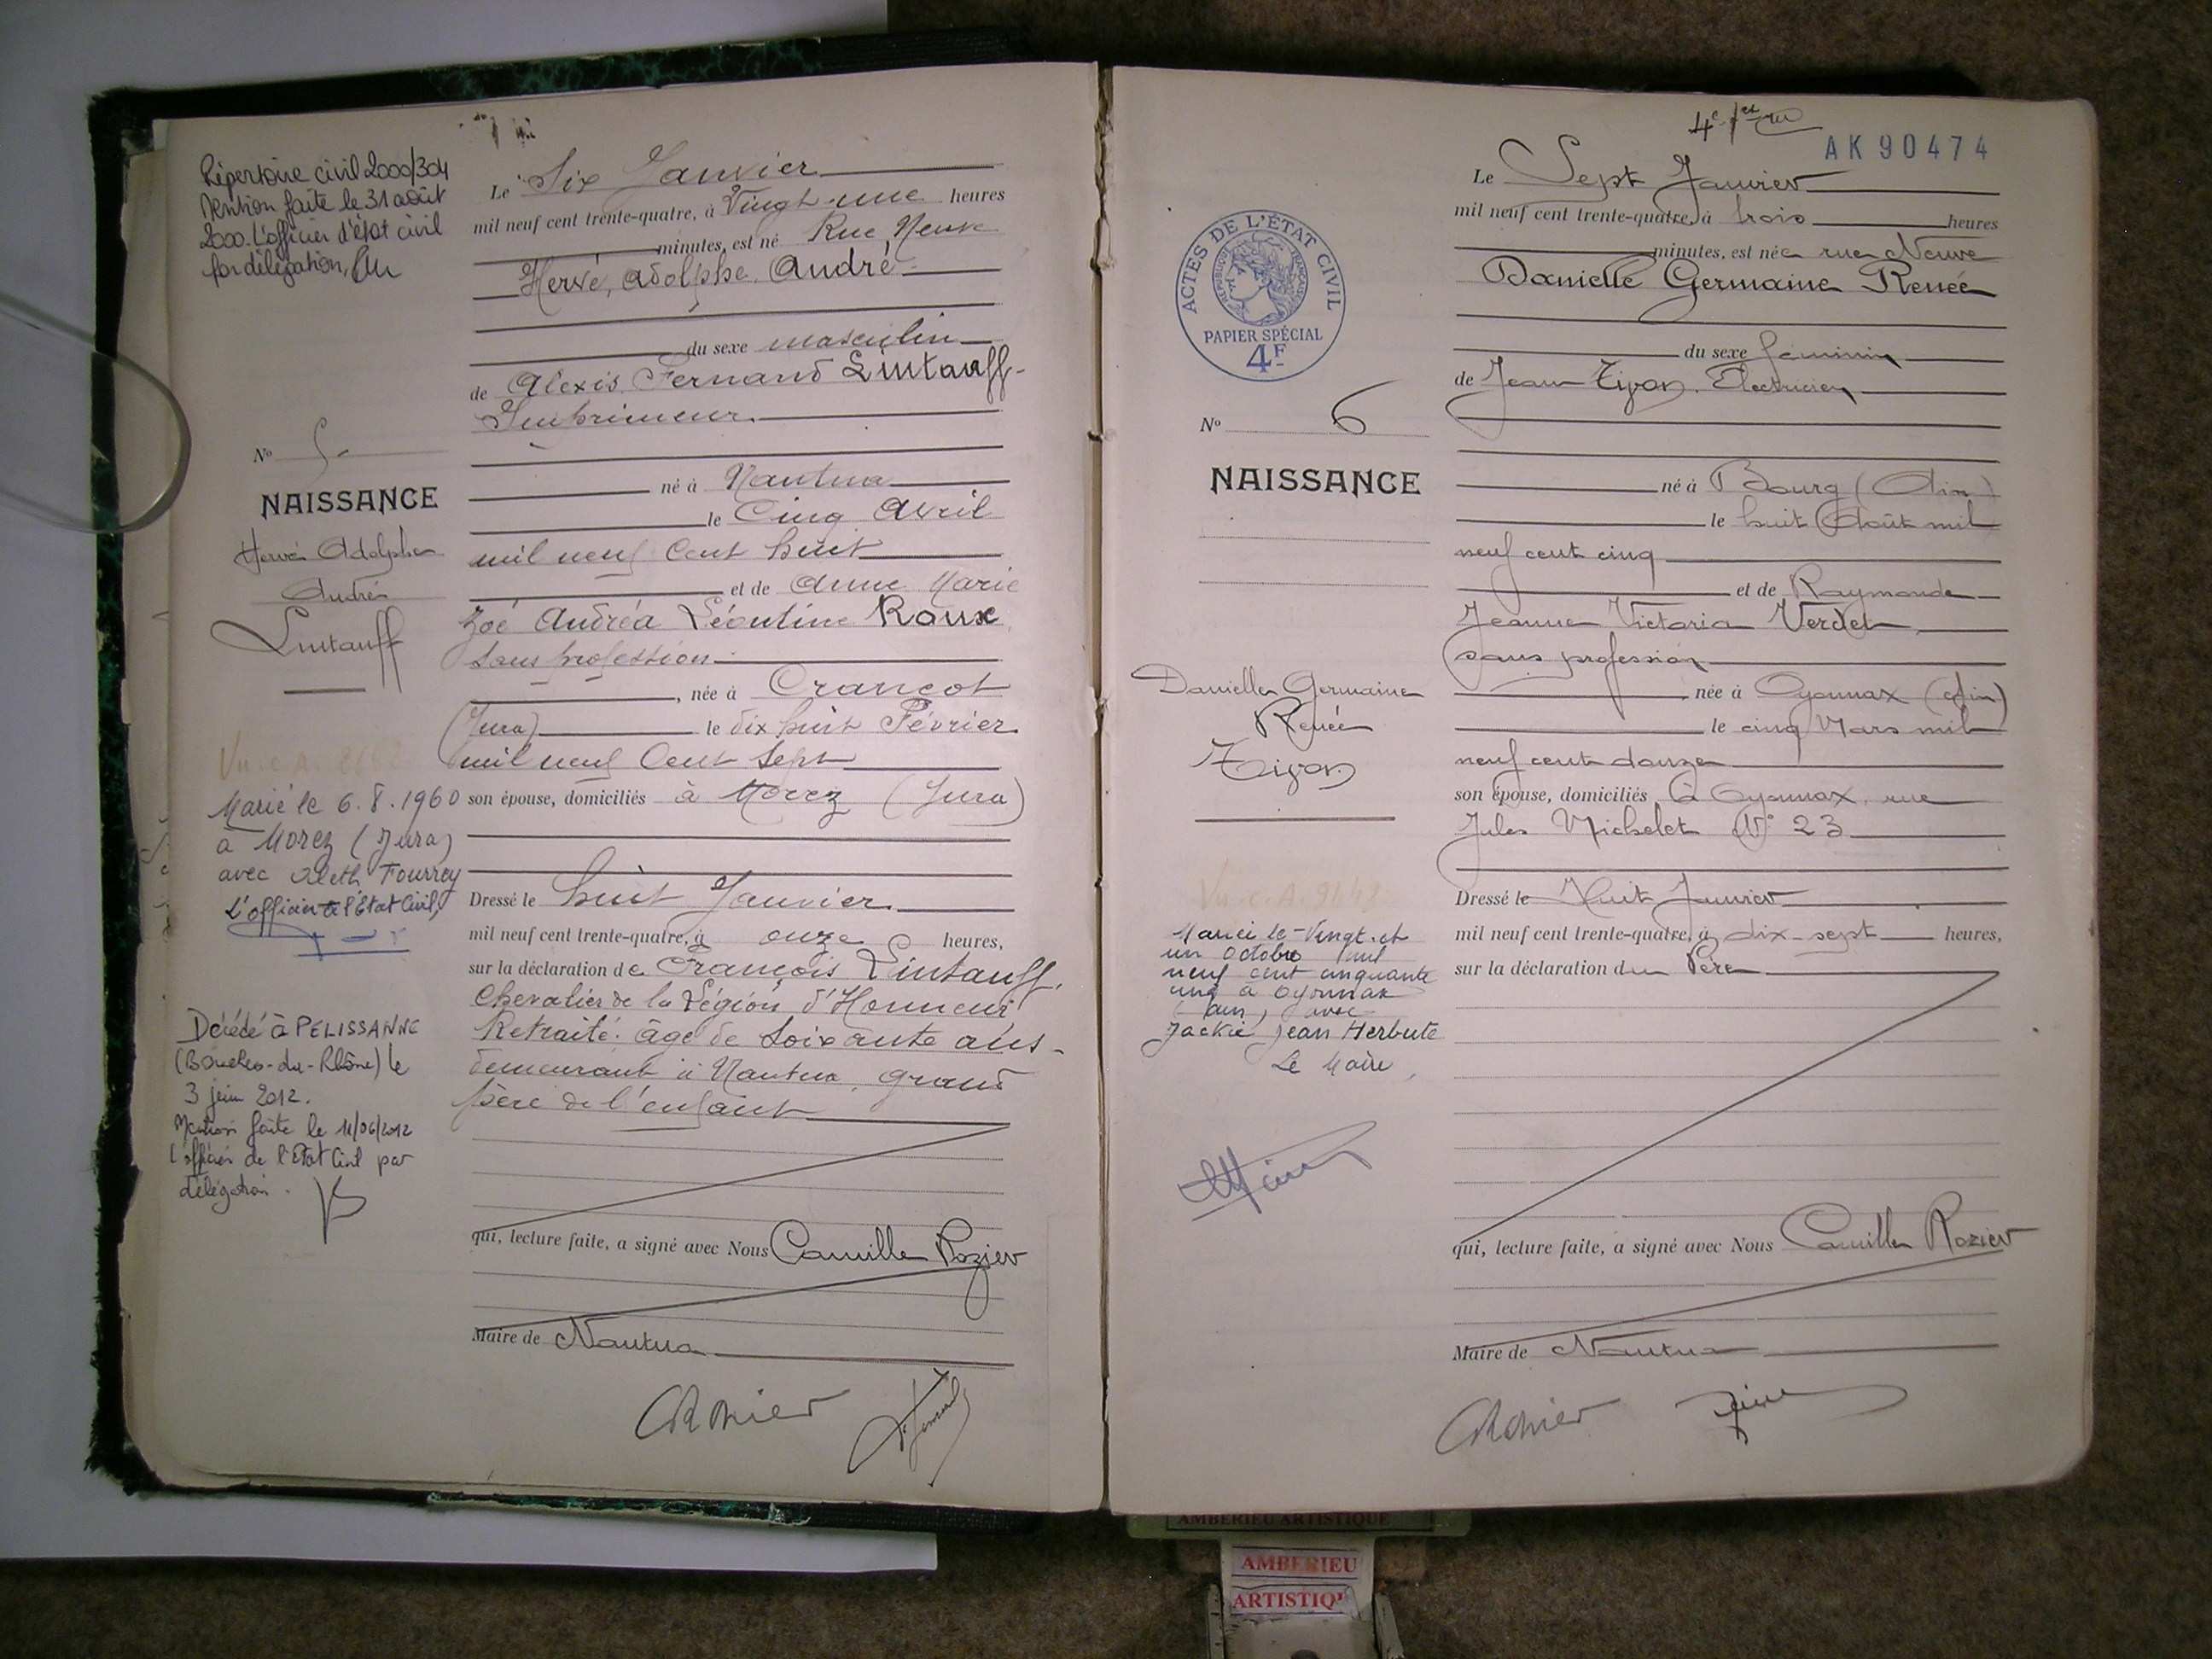 Répertoire civil 2000/304
Mention faite le 31 août
2000. L'officier d'état civil
par délégation,
Le Six Janvier
mil neuf cent trente-quatre, à Vingt-une heures
minutes, est né Rue Neuve
Hervé, Adolphe, André
du sexe masculin
de Alexis Fernand Lintauff
Imprimeur
né à Nantua
le Cinq Avril
mil neuf Cent huit
et de Anne Marie
Zoé Andréa Léontine Roux
Sans profession
, née à Crançot
(Jura) le dix huit Février
mil neuf Cent Sept
son épouse, domiciliés à Morez (Jura)
Dressé le huit Janvier
mil neuf cent trente-quatre, à onze heures,
sur la déclaration de François Lintauff,
Chevalier de la Légion d'Honneur
Retraité âgé de Soixante ans
demeurant à Nantua, grand
père de l'enfant
qui, lecture faite, a signé avec Nous Camille Rozier
Maire de Nantua
No 5
NAISSANCE
Hervé Adolphe
André
Lintauff
Marié le 6.8.1960
à Morez (Jura)
avec Aleth Fourrey
L'officier de l'État Civil,
Décédé à PELISSANNE
(Bouches-du-Rhône) le
3 juin 2012.
Mention faite le 11/06/2012
L'officier de l'Etat Civil par
délégation.
4e
AK 90474
Le Sept Janvier
mil neuf cent trente-quatre, à trois heures
minutes, est née rue Neuve
Danielle Germaine Renée
du sexe féminin
de Jean Electricien
né à Bourg (Ain)
le huit Août mil
neuf cent cinq
et de Raymonde
Jeanne Victoria Verdet
sans profession
née à Oyonnax (Ain)
le cinq Mars mil
neuf cent douze
son épouse, domiciliés à Oyonnax, rue
Jules Michelet N° 23
Dressé le Huit Janvier
mil neuf cent trente-quatre, à dix-sept heures,
sur la déclaration du Père
qui, lecture faite, a signé avec Nous Camille Rozier
Maire de Nantua
ACTES DE L'ÉTAT CIVIL
RÉPUBLIQUE FRANÇAISE
PAPIER SPÉCIAL
4F
No 6
NAISSANCE
Danielle Germaine
Renée
Mariée le Vingt-et
un Octobre mil
neuf cent cinquante
cinq à Oyonnax
(Ain) avec
Jackie Jean Herbute
Le Maire,
AMBERIEU ARTISTIQUE
AMBERIEU
ARTISTIQU